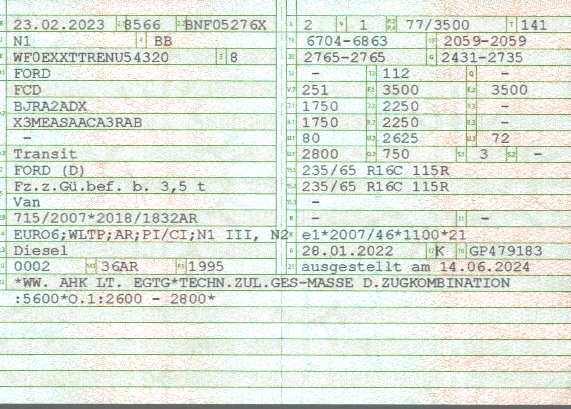 23.02.2023 8566 BNF05276X 2 1 77/3500 141
N1 BB 6704-6863 2059-2059
WF0EXXTTRENU54320 8 2765-2765 2431-2735
FORD - 112 -
FCD 251 3500 3500
BJRA2ADX 1750 2250 -
X3MEASAACA3RAB 1750 2250 -
- 80 2625 72
Transit 2800 750 3 -
FORD (D) 235/65 R16C 115R
Fz.z.Gü.bef. b. 3,5 t 235/65 R16C 115R
Van -
715/2007*2018/1832AR - -
EURO6;WLTP;AR;PI/CI;N1 III, N2 e1*2007/46*1100*21
Diesel 28.01.2022 K GP479183
0002 36AR 1995 ausgestellt am 14.06.2024
*WW. AHK LT. EGTG*TECHN.ZUL.GES-MASSE D.ZUGKOMBINATION
:5600*O.1:2600 - 2800*